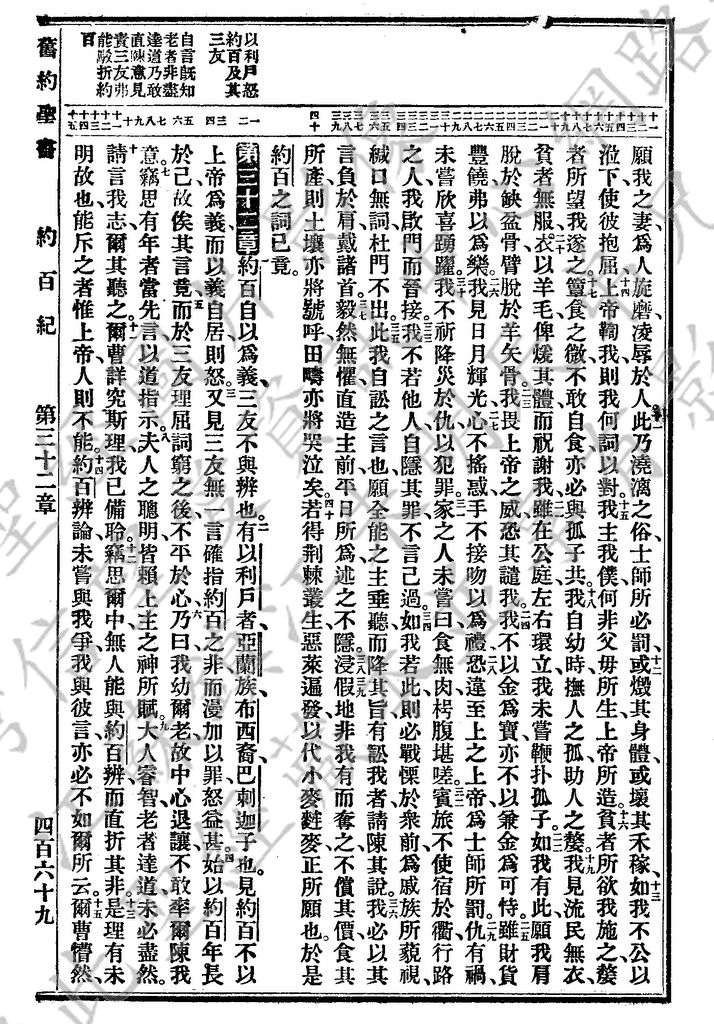 以利戶怒
約百及其
三友
自言既知
老者非盡
達道乃敢
直陳意見
責三友弗
能駁折約
百
願我之妻爲人旋磨凌辱於人此乃澆漓之俗士師所必罰或燬其身體或壞其禾稼如我不公以
涖下使彼抱屈上帝鞫我則我何詞以對我主我僕何非父母所生上帝所造貧者所欲我施之嫠
者所望我遂之簞食之微不敢自食亦必與孤子共我自幼時撫人之孤助人之嫠我見流民無衣
貧者無服衣以羊毛俾煖其體而祝謝我雖在公庭左右環立我未嘗鞭扑孤子如我有此願我肩
脫於缺盆骨臂脫於羊矢骨我畏上帝之威恐其譴我我不以金爲寶亦不以兼金爲可恃雖財貨
豐饒弗以爲樂我見日月輝光心不搖惑手不接吻以爲禮恐違至上之上帝爲士師所罰仇有禍
未嘗欣喜踴躍我不祈降災於仇以犯罪家之人未嘗曰食無肉枵腹堪嗟賓旅不使宿於衢行路
之人我啟門而晉接我不若他人自隱其罪不言己過如我若此則必戰慄於衆前爲戚族所藐視
緘口無詞杜門不出此我自訟之言也願全能之主垂聽而降其旨有訟我者請陳其說我必以其
言負於肩戴諸首毅然無懼直造主前平日所爲述之不隱浸假地非我有而奪之不償其價食其
所產則土壤亦將號呼田疇亦將哭泣矣若得荆棘叢生惡萊遍發以代小麥麰麥正所願也於是
約百之詞已竟
第三十二章約百自以爲義三友不與辨也有以利戶者亞蘭族布西裔巴剌迦子也見約百不以
上帝爲義而以義自居則怒又見三友無一言確指約百之非而漫加以罪怒益甚始以約百年長
於己故俟其言竟而於三友理屈詞窮之後不平於心乃曰我幼爾老故中心退讓不敢率爾陳我
意竊思有年者當先言以道指示夫人之聰明皆賴上主之神所賦大人睿智老者達道未必盡然
請言我志爾其聽之爾曹詳究斯理我已備聆竊思爾中無人能與約百辨而直折其非是理有未
明故也能斥之者惟上帝人則不能約百辨論未嘗與我爭我與彼言亦必不如爾所云爾曹懵然
舊約聖書 約百紀 第三十二章 四百六十九